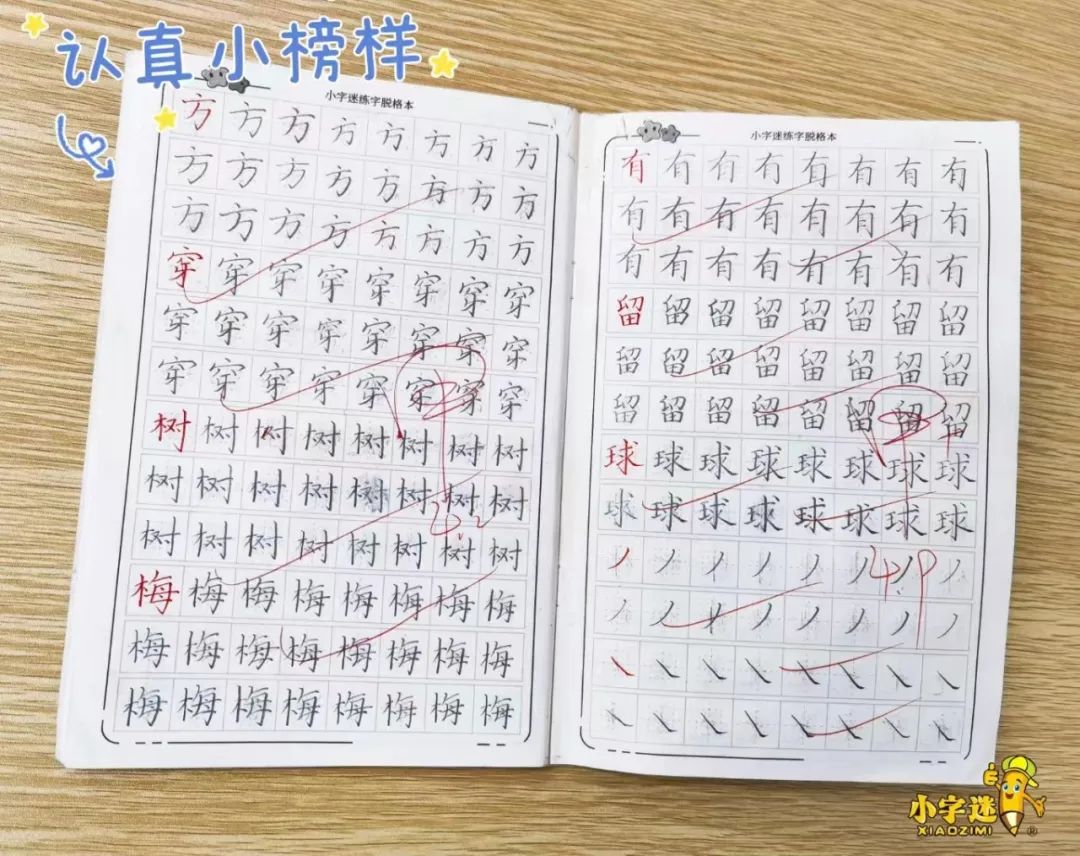 认真小榜样
小字迷练字脱格本
方方方方方方方方
方方方方方方方方
方方方方方方方方
穿穿穿穿穿穿穿穿
穿穿穿穿穿穿穿穿
穿穿穿穿穿穿穿穿
树树树树树树树树
树树树树树树树树
树树树树树树树树
梅梅梅梅梅梅梅梅
梅梅梅梅梅梅梅梅
梅梅梅梅梅梅梅梅
小字迷练字脱格本
有有有有有有有有
有有有有有有有有
有有有有有有有有
留留留留留留留留
留留留留留留留留
留留留留留留留留
球球球球球球球球
球球球球球球球球
丿丿丿丿丿丿丿丿
丿丿丿丿丿丿丿丿
㇏㇏㇏㇏㇏㇏㇏㇏
㇏㇏㇏㇏㇏㇏㇏㇏
小字迷
XIAOZIMI